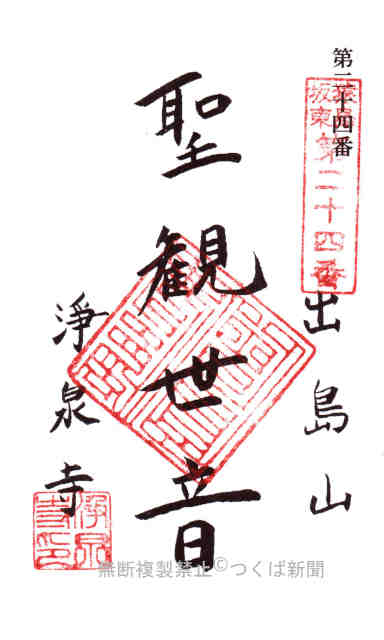 第二十四番
猿島
坂東
第二十四番
出島山
聖観世音
淨泉寺
淨泉寺印
無断複製禁止©つくば新聞